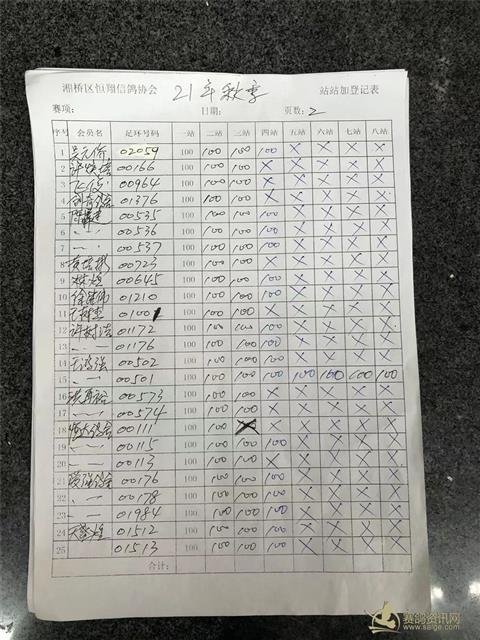 湘桥区恒翔信鸽协会 21年秋季 站站加登记表
赛项: 日期: 页数: 2
序号 会员名 足环号码 一站 二站 三站 四站 五站 六站 七站 八站
1 02059 100 100 100 100 X X X X
2 00166 100 100 100 X X X X X
3 00964 100 100 100 X X X X X
4 01376 100 100 100 X X X X
5 00535 100 100 100 100 X X X X
6 00536 100 100 100 100 X X X X
7 00537 100 100 100 100 X X X X
8 00723 100 100 100 X X X X X
9 00645 100 100 100 100 X X X X
10 01210 100 100 100 100 X X X X
11 01001 100 100 100 X X X X X
12 01172 100 100 100 100 X X X X
13 01176 100 100 100 100 X X X X
14 00502 100 100 100 100 X X X X
15 00501 100 100 100 100 100 100 100 100
16 00573 100 100 100 X X X X X
17 00574 100 100 100 X X X X X
18 00111 100 100 X X X X X
19 00115 100 100 100 100 X X X X
20 00113 100 100 100 X X X X X
21 00176 100 100 100 100 X X X X
22 00178 100 100 100 100 X X X X
23 01984 100 100 100 100 X X X X
24 01512 100 100 100 100 X X X X
25 01513 100 100 100 100 X X X X
合计:
赛鸽资讯网
www.saige.com